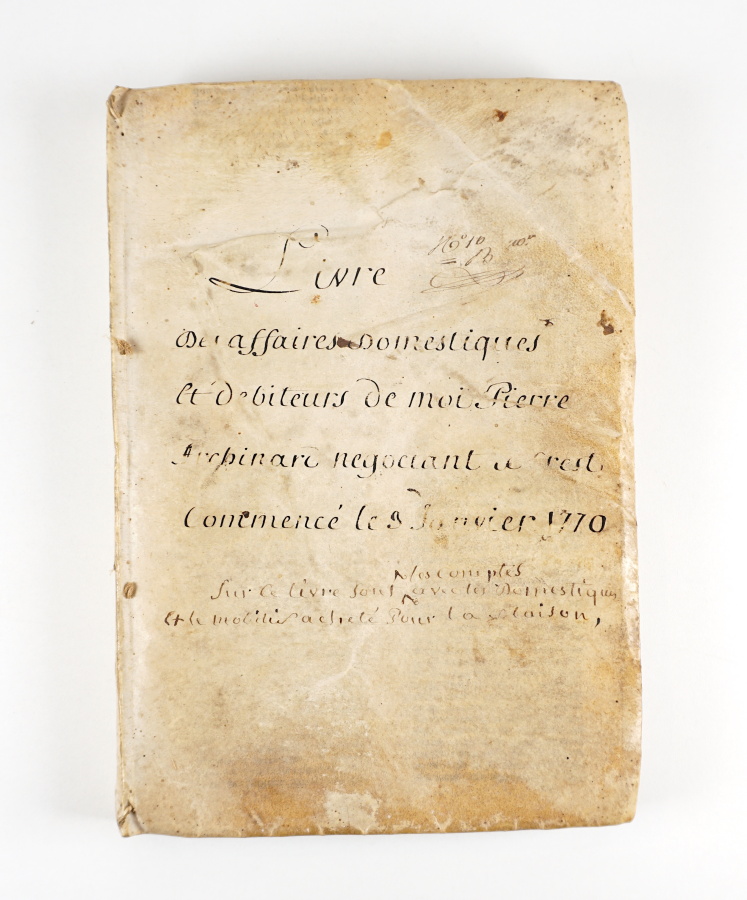 Livre
N° 10
Des affaires Domestiques
et debiteurs De moi Pierre
Archinard négociant a Crest
Commencé le 9 Janvier 1770
Nos comptes
Sur ce livre sont avec les Domestiques
et le mobilier acheté pour la Maison,